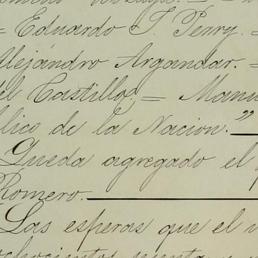 = Eduardo T. Penry. =
Alejandro Argandar. =
del Castillo. = Manu
blico de la Nacion."
Queda agregado el p
Romero.
Las esperas que el v